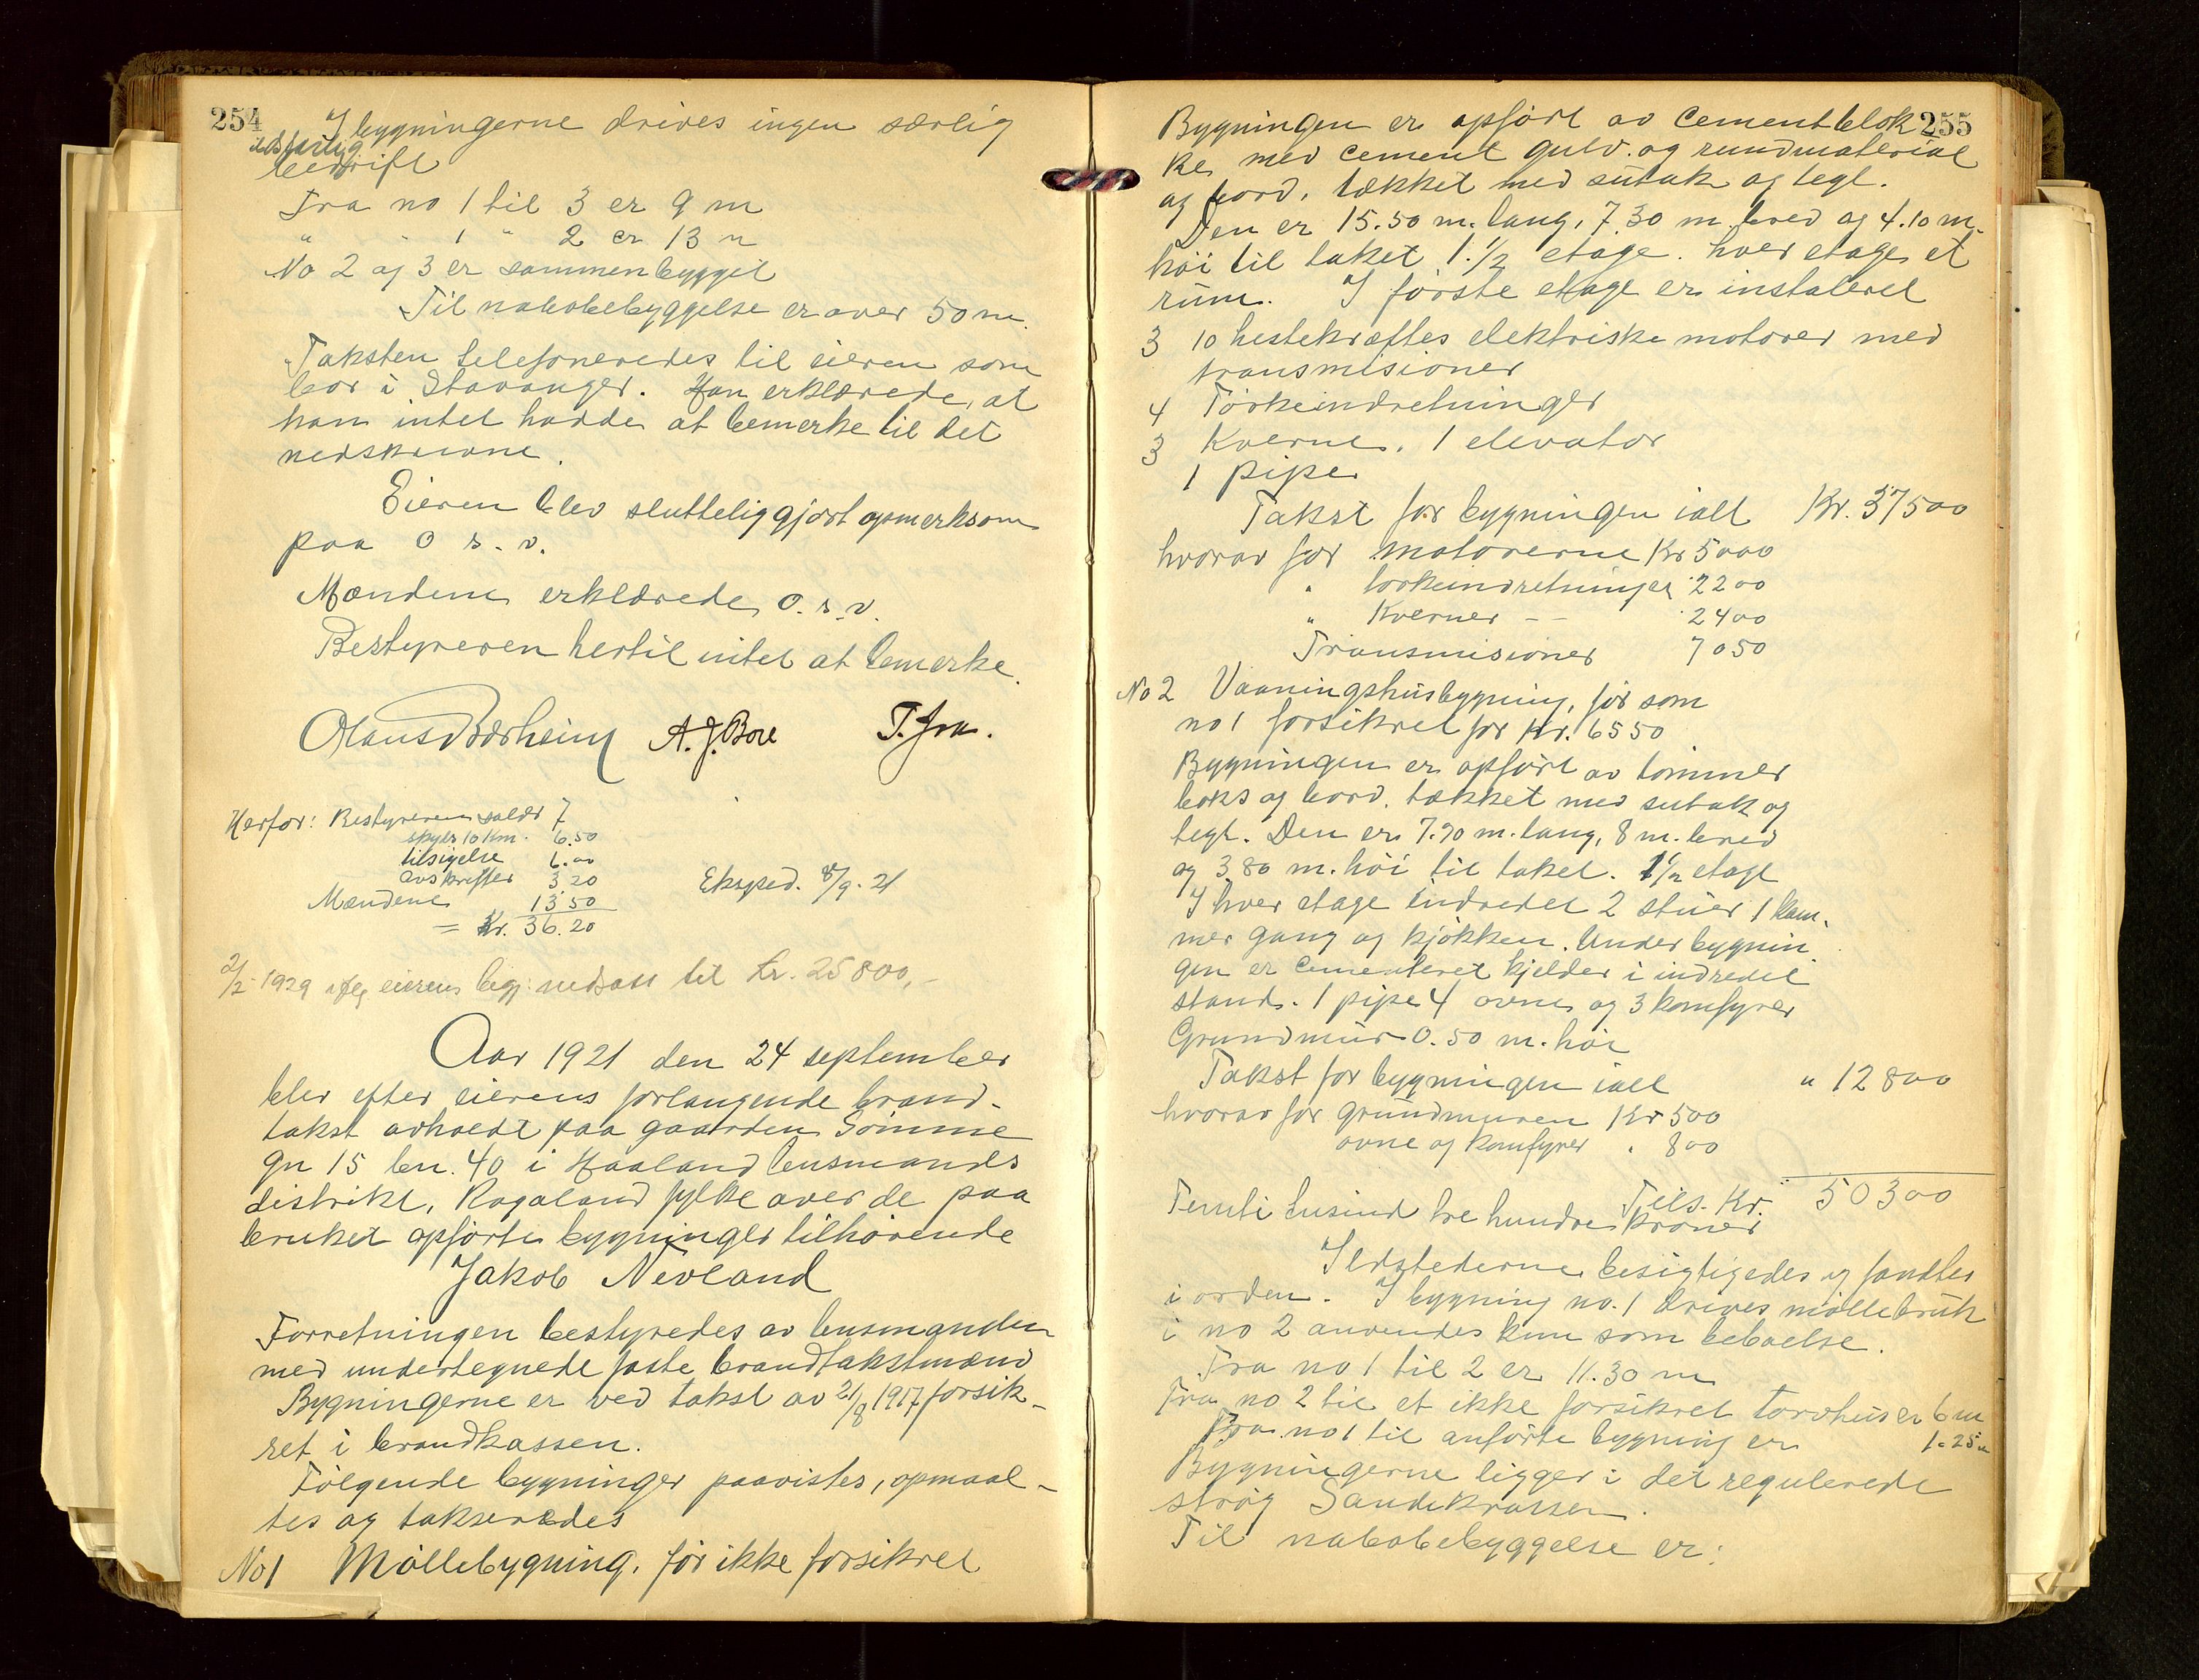 254
I bygningerne drives ingen særlig
ildsfarlig
bedrift
Fra no 1 til 3 er 9 m
" - 1 " 2 er 13 m
No 2 og 3 er sammenbygget
Til nabobebyggelse er over 50 m.
Taksten telefoneredes til eieren som
bor i Stavanger. Han erklærede, at
han intet hadde at bemerke til det
nedskrevne.
Eieren blev sluttelig gjort opmerksom
paa o. s. v.
Mændene erklærede o. s. v.
Bestyreren hertil intet at bemerke.
Olaus Bærheim A. J. Bore T. Fra.
Herfor: Bestyreren salær 7
skyds 10 Km. 6.50
tilsigelse 6.00
avskrifter 3.20
Mændene 13.50
= Kr. 36.20
Eksped. 8/9. 21
2/2 1929 iflg eierens begj. nedsatt til kr. 25800,-
Aar 1921 den 24 september
blev efter eierens forlangende brand-
takst avholdt paa gaarden Sømme
gn 15 bn. 40 i Haaland lensmands
distrikt, Rogaland fylke over de paa
bruket opførte bygninger tilhørende
Jakob Nevland
Forretningen bestyredes av lensmanden
med undertegnede faste brandtakstmænd
Bygningerne er ved takst av 21/8 1917 forsik-
ret i brandkassen.
Følgende bygninger paavistes, opmaal-
tes og takseredes
No 1 Møllebygning, før ikke forsikret
255
Bygningen er opført av cementblok
ke, med cement gulv og rundmaterial
og bord, tækket med sutak og tegl.
Den er 15.50 m. lang, 7.30 m bred og 4.10 m.
høi til taket 1 1/2 etage. hver etage et
rum. I første etage er instaleret
3 10 hestekræftes elektriske motorer med
transmisioner
4 Tørkeindretninger
3 Kverne, 1 elevator
1 pipe
Takst for bygningen ialt Kr. 37500
hvorav for motorerne Kr 5000
" tørkeindretninger " 2200
" Kverner - - " 2400
Transmisioner 7050
No 2 Vaaningshusbygning, før som
no 1 forsikret for Kr. 6550
Bygningen er opført av tømmer
boks og bord, tækket med sutak og
tegl. Den er 7.90 m. lang, 8 m. bred
og 3.80 m. høi til taket. 1 1/2 etage
I hver etage indredet 2 stuer 1 kam-
mer gang og kjøkken. Under bygnin
gen er cementeret kjelder i indredet
stand. 1 pipe 4 ovne og 3 komfyrer
Grundmur 0.50 m. høi
Takst for bygningen ialt " 12800
hvorav for grundmuren Kr 500
ovne og komfyrer " 800
Tils. Kr. 50300
Femti tusind tre hundre kroner
Ildstederne besigtigedes og fandtes
i orden. I bygning no. 1 drives møllebruk
i no 2 anvendes kun som beboelse.
Fra no 1 til 2 er 11.30 m
Fra no 2 til et ikke forsikret torvhus er 6 m
Fra no 1 til anførte bygning er 1.25 "
Bygningerne ligger i det regulerede
strøg Sandekrossen.
Til nabobebyggelse er: